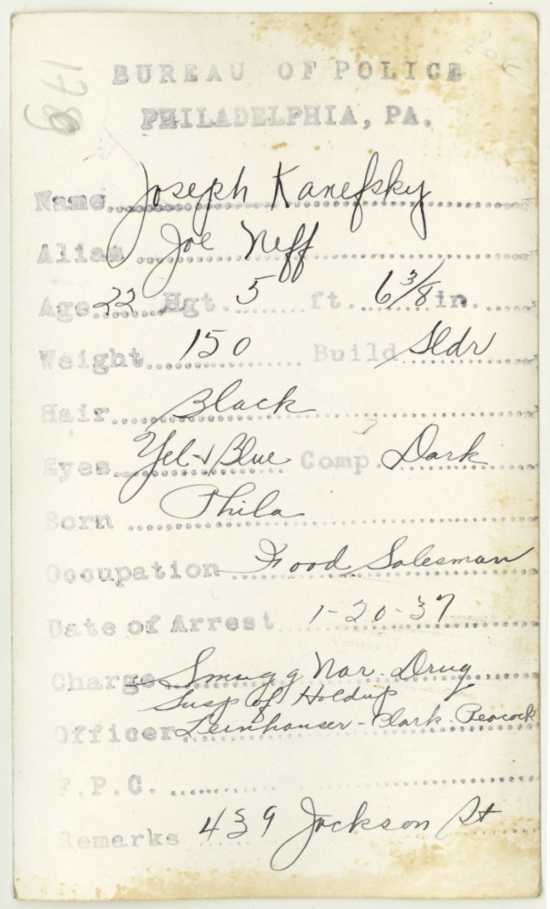 BUREAU OF POLICE
PHILADELPHIA, PA.
Name Joseph Kanefsky
Alias Joe Neff
Age 22 Hgt. 5 ft. 6 3/8 in.
Weight 150 Build Sldr
Hair Black
Eyes Yel + Blue Comp. Dark
Born Phila
Occupation Food Salesman
Date of Arrest 1-20-37
Charge Smugg Nar. Drug
Susp of Holdup
Officer Leinhauser - Clark - Peacock
F.P.C.
Remarks 439 Jackson St